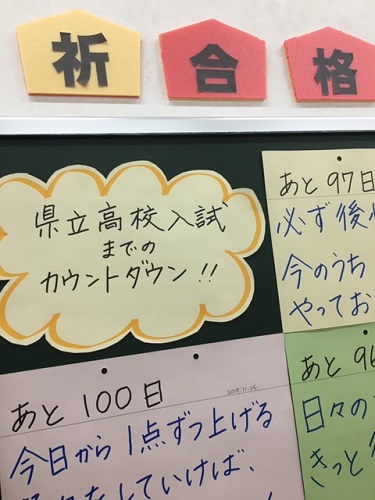 祈合格
県立高校入試
までの
カウントダウン!!
あと97日
必ず後
今のうち
やってお
あと100日
2018.11.26
今日から1点ずつ上げる
していけば、
あと96
日々の
きっと